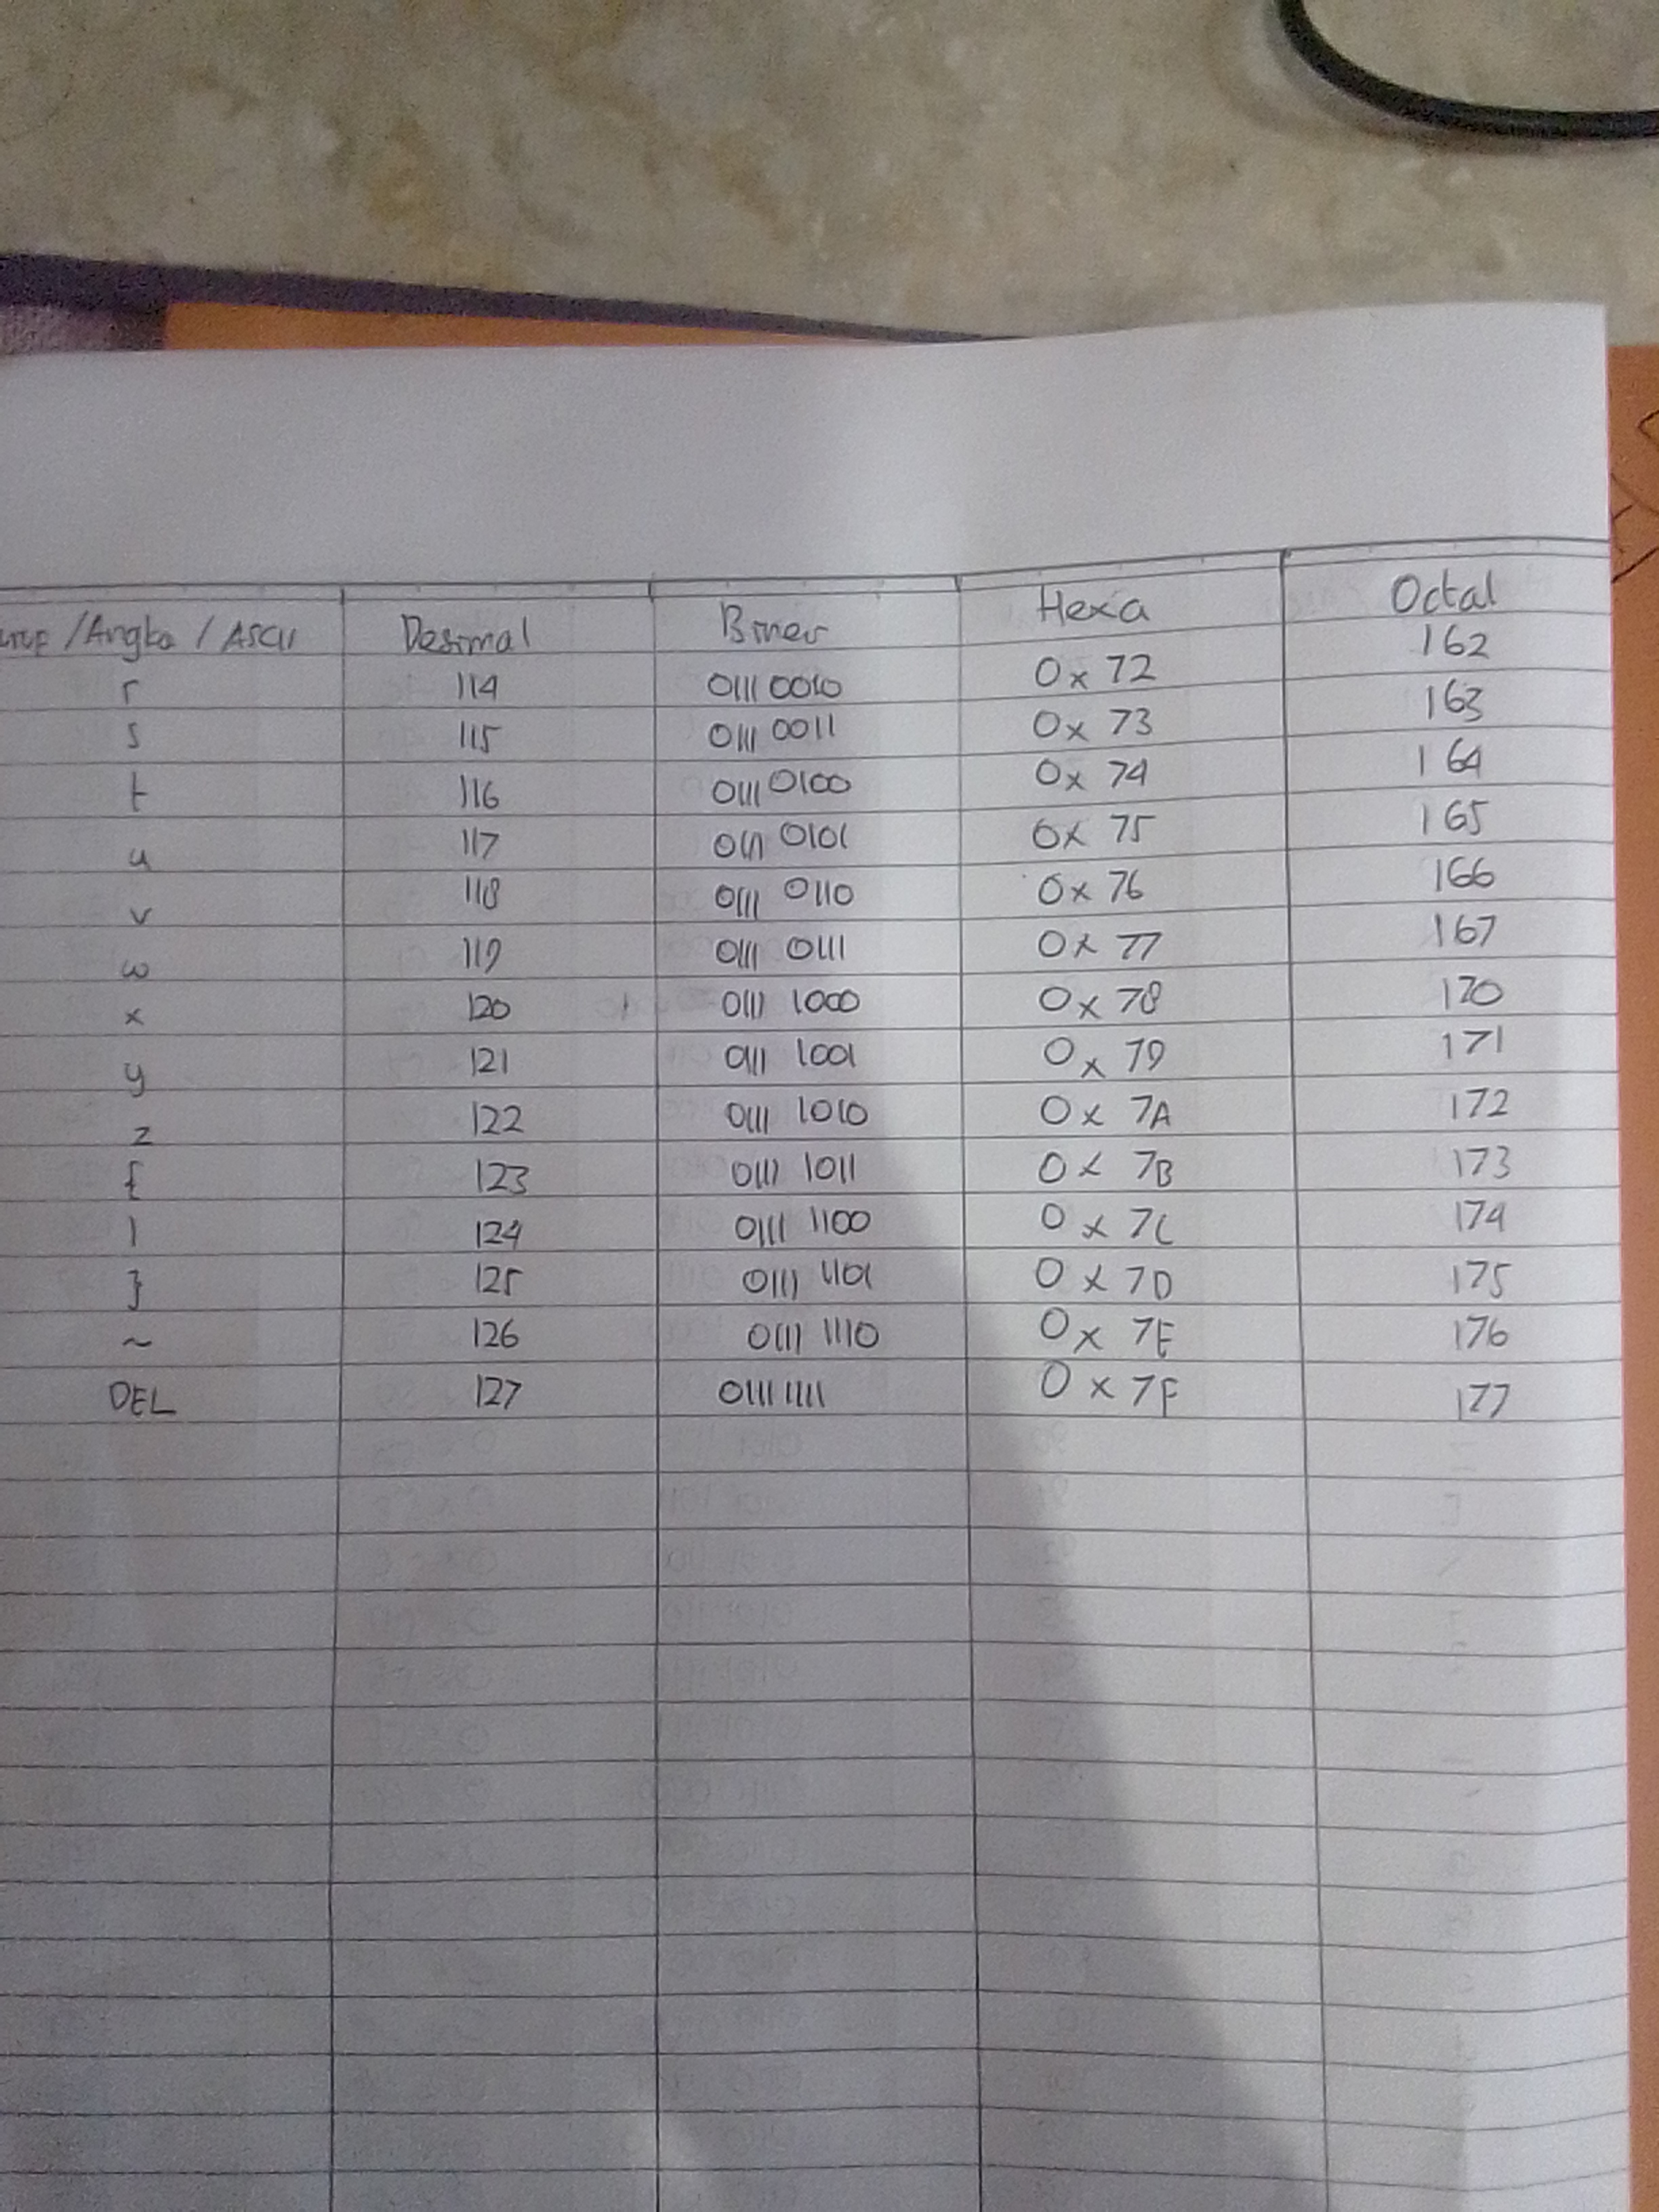 /Angka / ASCII Desimal Biner Hexa Octal
r 114 0111 0010 0x 72 162
s 115 0111 0011 0x 73 163
t 116 0111 0100 0x 74 164
u 117 0111 0101 0x 75 165
v 118 0111 0110 0x 76 166
w 119 0111 0111 0x 77 167
x 120 0111 1000 0x 78 170
y 121 0111 1001 0x 79 171
z 122 0111 1010 0x 7A 172
{ 123 0111 1011 0x 7B 173
| 124 0111 1100 0x 7C 174
} 125 0111 1101 0x 7D 175
~ 126 0111 1110 0x 7E 176
DEL 127 0111 1111 0x 7F 177